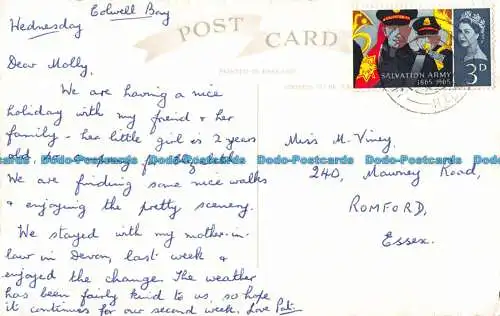 Edwell Bay
Wednesday
POST CARD
PRINTED IN ENGLAND
SALVATION ARMY
1865 1965
3D
Dear Molly,
We are having a nice
holiday with my friend & her
family - her little girl is 2 years
old
We are finding some nice walks
& enjoying the pretty scenery.
We stayed with my mother-in-
law in Devon, last week &
enjoyed the change. The weather
has been fairly kind to us, so hope
it continues for our second week. Love Pat.
Miss M. Viney,
240, Mawney Road,
ROMFORD,
Essex.
Dodo-Postcards Dodo-Postcards Dodo-Postcards Dodo-Postcards Dodo-Postcards